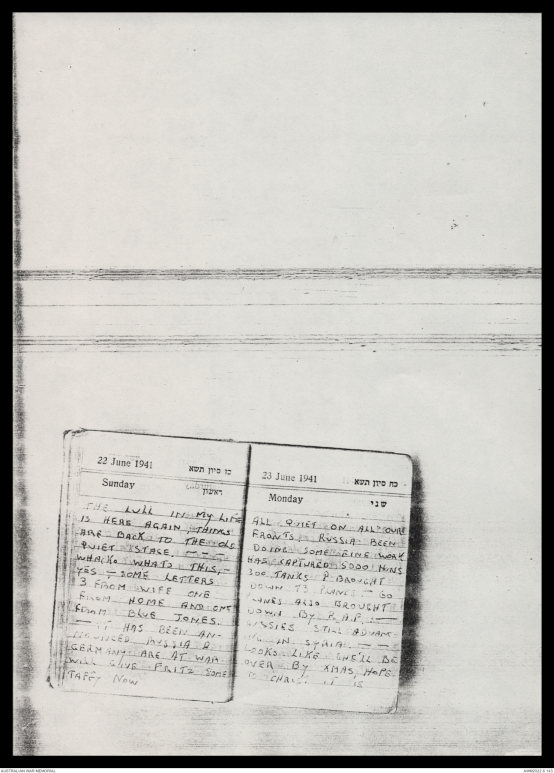 22 June 1941 כז סיון תשא
Sunday ראשון
THE LULL IN MY LIFE
IS HERE AGAIN, THINGS
ARE BACK TO THE OLD
QUIET STAGE, — — —
WHACKO WHATS THIS, —
YES — SOME LETTERS
3 FROM WIFE ONE
FROM HOME AND ONE
FROM BLUE JONES.
— IT HAS BEEN AN-
NOUNCED RUSSIA &
GERMANY ARE AT WAR
WILL GIVE FRITZ SOME
TAFFY NOW
23 June 1941 כח סיון תשא
Monday שני
ALL QUIET ON ALL OURE
FRONTS, RUSSIA BEEN
DOING SOME FINE WORK
HAS CAPTURED 5000 HUNS
300 TANKS & BROUGHT
DOWN 73 PLANES — 60
PLANES ALSO BROUGHT
DOWN BY R.A.F. —
AUSSIES STILL ADVANC-
ING IN SYRIA. — —
LOOKS LIKE SHE'LL BE
OVER BY XMAS, HOPE
IT IS
AUSTRALIAN WAR MEMORIAL